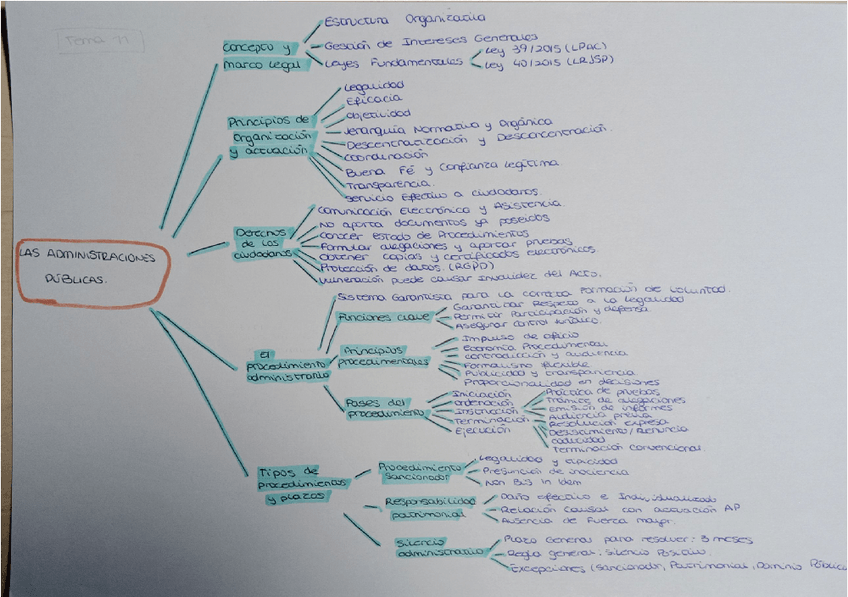 Tema 11
Estructura Organizativa
Concepto y
marco legal
Gestión de Intereses Generales
Leyes Fundamentales
Ley 39/2015 (LPAC)
Ley 40/2015 (LRJSP)
Principios de
Organización
y actuación
Legalidad
Eficacia
Objetividad
Jerarquía Normativa y Orgánica
Descentralización y Desconcentración.
Coordinación
Buena Fé y Confianza Legítima
Transparencia.
Servicio Efectivo a ciudadanos.
LAS ADMINISTRACIONES
PÚBLICAS.
Derechos
de los
ciudadanos
Comunicación Electrónica y Asistencia.
No aporta documentos ya poseidos
Conocer estado de Procedimientos
Formular alegaciones y aportar pruebas
Obtener copias y certificados electrónicos.
Protección de datos. (RGPD)
Vulneración puede causar Invalidez del Acto.
El
procedimiento
administrativo
Sistema Garantista para la correcta Formación de voluntad.
Funciones clave
Garantizar Respeto a la legalidad
Permitir Participación y defensa
Asegurar control Jurídico.
Principios
procedimentales
Impulso de oficio
Economía Procedimental
Contradicción y audiencia
Formalismo flexible
Publicidad y transparencia
Proporcionalidad en decisiones
Fases del
procedimiento
Iniciación
Ordenación
Instrucción
Terminación
Ejecución
Práctica de pruebas
Trámite de alegaciones
Emisión de informes
Audiencia previa
Resolución expresa
Desistimiento / Renuncia
Caducidad
Terminación convencional.
Tipos de
procedimientos
y plazos
Procedimiento
sancionador
Legalidad y tipicidad
Presunción de inociencia
Non Bis in Idem
Responsabilidad
patrimonial
Daño efectivo e Individualizado
Relación causal con actuación AP
Ausencia de Fuerza mayor.
Silencio
administrativo
Plazo General para resolver: 3 meses
Regla general: Silencio Positivo.
Excepciones (sancionador, Patrimonial, Dominio Público